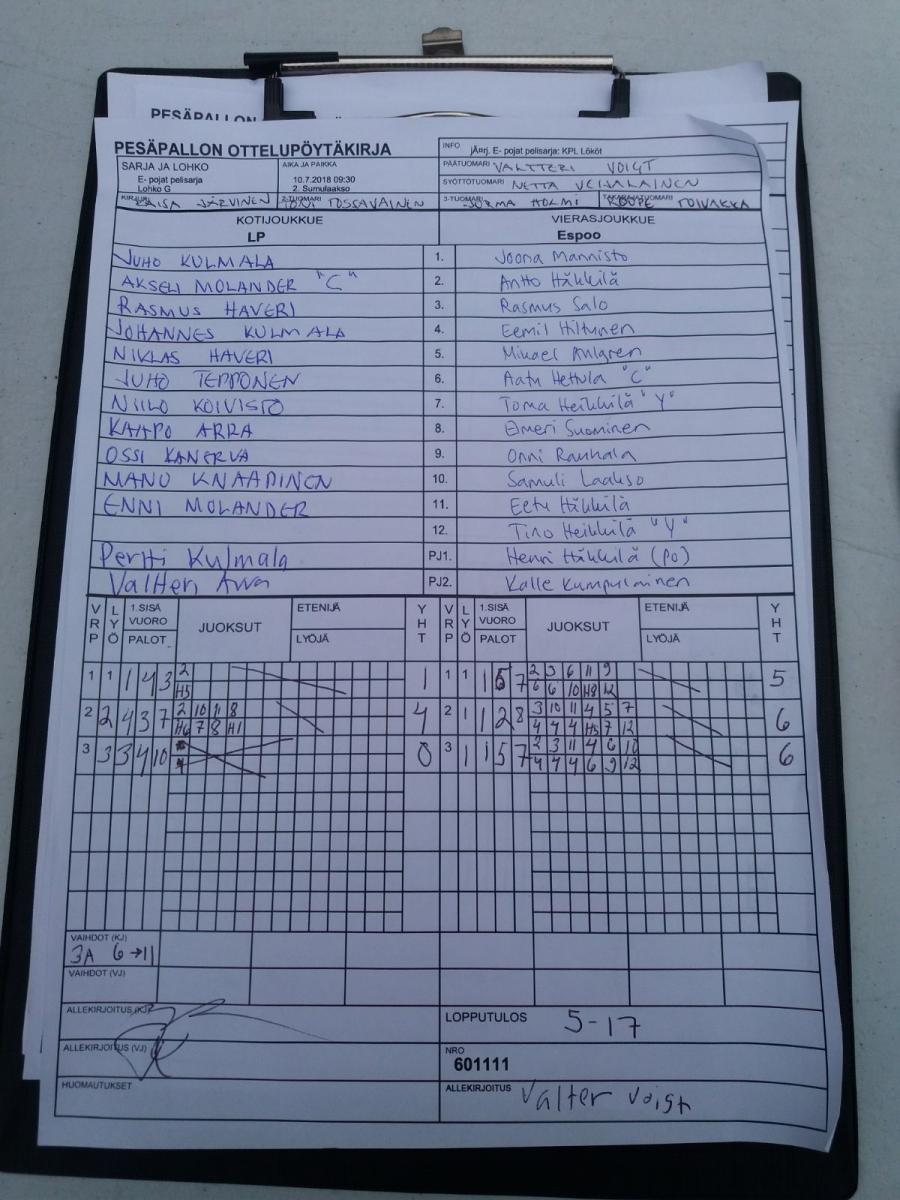 PESÄPALLON
PESÄPALLON OTTELUPÖYTÄKIRJA
INFO jÄnrj. E- pojat pelisarja: KPL Lököt
SARJA JA LOHKO
E- pojat pelisarja
Lohko G
AIKA JA PAIKKA
10.7.2018 09:30
2. Sumulaakso
PÄÄTUOMARI VALTTERI VOIGT
SYÖTTÖTUOMARI NETTA VEIJALAINEN
KIRJURI KAISA JÄRVINEN 2-TUOMARI TONI TOSSAVAINEN 3-TUOMARI JORMA HOLMI TAKARAJATUOMARI ROOPE TOIVAKKA
KOTIJOUKKUE VIERASJOUKKUE
LP Espoo
JUHO KULMALA 1. Joona Mannisto
AKSELI MOLANDER "C" 2. Antto Häkkilä
RASMUS HAVERI 3. Rasmus Salo
JOHANNES KULMALA 4. Eemil Hiltunen
NIKLAS HAVERI 5. Mikael Ahlgren
JUHO TEPPONEN 6. Aatu Hettula "C"
NIILO KOIVISTO 7. Toma Heikkilä "Y"
KAAPO ARRA 8. Elmeri Suominen
OSSI KANERVA 9. Onni Rauhala
MANU KNAAPINEN 10. Samuli Laakso
ENNI MOLANDER 11. Eetu Häkkilä
12. Tino Heikkilä "Y"
Pertti Kulmala PJ1. Henri Häkkilä (PO)
Valtteri Arra PJ2. Kalle Kumpulainen
VRP LYÖ 1.SISÄ VUORO PALOT JUOKSUT ETENIJÄ LYÖJÄ YHT VRP LYÖ 1.SISÄ VUORO PALOT JUOKSUT ETENIJÄ LYÖJÄ YHT
1 1 1 4 3 2 1 1 1 1 6 7 2 3 6 11 9 5
H5 6 6 10 H8 12
2 2 4 3 7 2 10 11 8 4 2 1 1 2 8 3 10 11 4 5 7 6
H6 7 8 H1 4 4 4 H5 7 12
3 3 3 4 10 0 3 1 1 5 7 2 3 11 4 6 10 6
4 4 4 6 9 12
VAIHDOT (KJ)
3A 6→11
VAIHDOT (VJ)
ALLEKIRJOITUS (KJ) LOPPUTULOS 5-17
ALLEKIRJOITUS (VJ) NRO
601111
HUOMAUTUKSET ALLEKIRJOITUS Valter Voigt